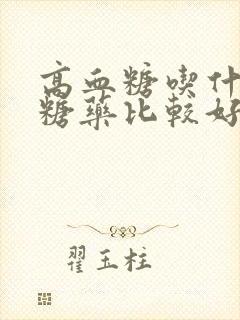 高血糖喫什
糖藥比較好
翟玉柱